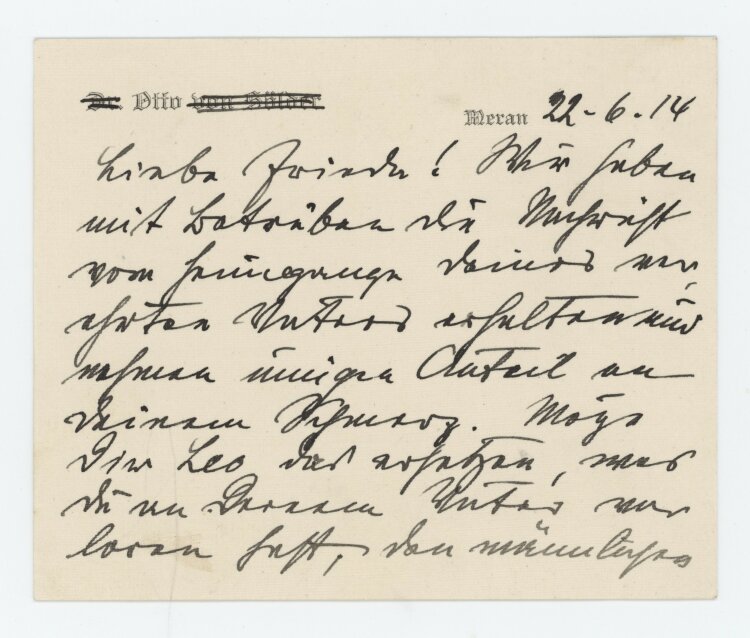 Dr. Otto von Sölder
Meran 22-6.14
Liebe Frieda! Wir haben
mit Betrüben die Nachricht
vom Heimgange Deines ver,
ehrten Vaters erhalten und
nehmen innigen Anteil an
Deinem Schmerz. Möge
Dir Leo das ersetzen, was
Du an Deinem Vater ver
loren hast, den männlichen